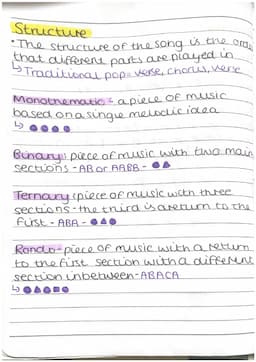 Structure
• The structure of the song is the order
that different parts are played in
↳ Traditional pop = verse, chorus, verse
Monothematic : a piece of music
based on a single melodic idea
↳ ●●●●
Binary : piece of music with two main
sections - AB or AABB - ●▲
Ternary : piece of music with three
sections - the third is a return to the
first - ABA - ●▲●
Rondo - piece of music with a return
to the first section with a different
section inbetween - ABACA
↳ ●▲●■●